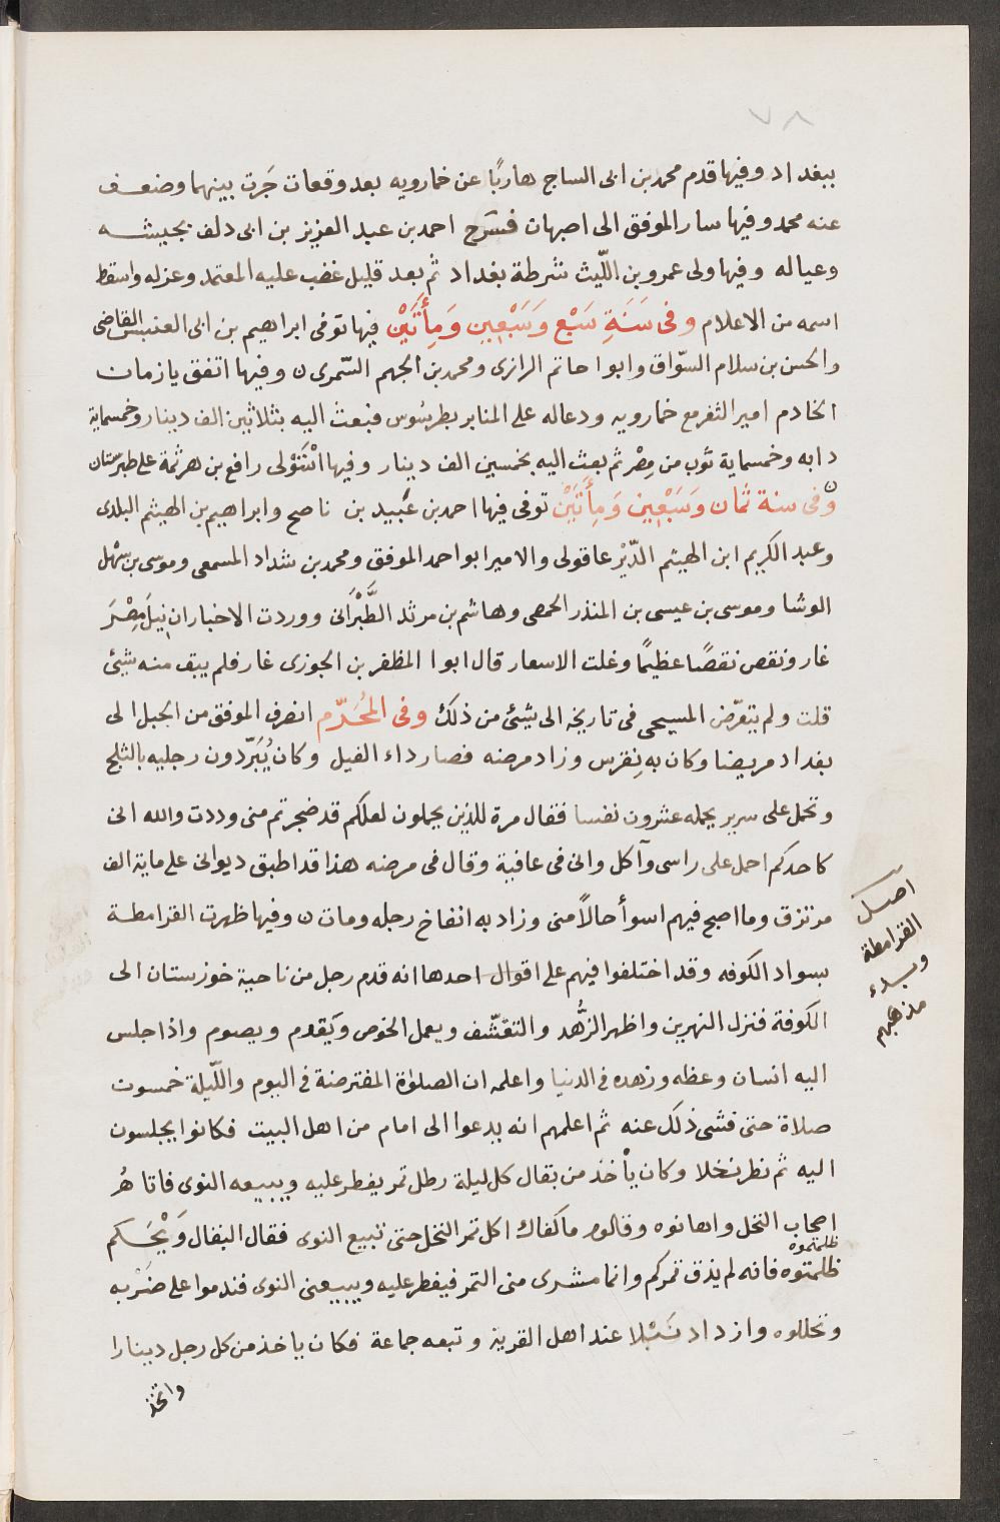 ٧٨
ببغداد وفيها قدم محمد بن ابى الساج هاربًا عن خمارويه بعد وقعات جَرَت بينهما وضعف
عنه محمد وفيها سار الموفق الى اصبهان فسَرح احمد بن عبد العزيز بن ابى دلف بجيشه
وعياله وفيها ولى عمرو بن اللّيث شرطة بغداد ثم بعد قليل غضب عليه المعتمد وعزله واسقط
اسمه من الاعلام وفى سَنَةِ سَبْع وَسَبْعِين وَمِأَتَيْن فيها توفى ابراهيم بن ابى العنبس القاضى
والحسن بن سلام السوّاق وابوا حاتم الرازى ومحمد بن الجهم السّمرى ن وفيها اتفق يازمان
الخادم امير الثغر مع خمارويه ودعاله على المنابر بطرسُوس فبعث اليه بثلاثين الف دينار وخمسماية
دابه وخمسماية ثوب من مِصْر ثم بعث اليه بخمسين الف دينار وفيها اسْتَوْلى رافع بن هرثمة على طبرستان
وفى سنة ثمان وَسَبْعِين وَمِأَتَيْن توفى فيها احمد بن عُبيد بن ناصح وابراهيم بن الهيثم البلدى
وعبد الكريم ابن الهيثم الدّيْر عاقولى والامير ابو احمد الموفق ومحمد بن شداد المسمعى وموسى بن سهْل
الوشا وموسى بن عيسى بن المنذر الحمصى وهاشم بن مرثد الطَّبْرَانى ووردت الاخبار ان نيلَ مِصْرَ
غار ونقص نقصًا عظيمًا وغلت الاسعار قال ابوا المظفر بن الجوزى غار فلم يبق منه شيئ
قلت ولم يتعرّض المسيحى فى تاريخه الى شيئ من ذلك وفى المُحَرّم انصرف الموفق من الجبل الى
بغداد مريضا وكان به نِقرس وزاد مرضه فصار داء الفيل وكان يُبَرّدون رجليه بالثلج
وتحمل على سرير يحمله عشرون نفسا فقال مرة للذين يحملون لعلكم قد ضجرتم منى وددت والله انى
كاحدكم احمل على راسى وآكل وانى فى عافية وقال فى مرضه هذا قد اطبق ديوانى على ماية الف
مرتزق وما اصبح فيهم اسوأ حالاً منى وزاد به انفاخ رجله ومات ن وفيها ظهرت القرامطة
بسواد الكوفه وقد اختلفوا فيهم على اقوال احدها انه قدم رجل من ناحية خوزستان الى
الكوفة فنزل النهرين واظهر الزُّهد والتقشّف ويعمل الخوص ويَقوم ويصوم واذا جلس
اليه انسان وعظه وزهده فى الدنيا واعلمه ان الصلوٰة المفترضة فى اليوم واللّيلة خمسون
صلاة حتى فشى ذلك عنه ثم اعلمهم انه يدعوا الى امام من اهل البيت فكانوا يجلسون
اليه ثم نظر نخلا وكان يأخذ من بقال كل ليلة رطل تمر يفطر عليه ويبيعه النوى فاتاهُ
اصحاب النخل واهانوه وقالوا ما كفاك اكل تمر النخل حتى تبيع النوى فقال البقال وَيْحَكم
ظلمتموه
ظلمتوه فانه لم يذق تمركم وانما مشرى منى التمر فيفطر عليه ويبيعنى النوى فندموا على ضَرْبه
وتحللوه وازداد نَبْلا عند اهل القرية وتبعه جماعة فكان ياخذ من كل رجل دينارا
واتخذ
اصل
القرامطة
وبدء
مذهبهم